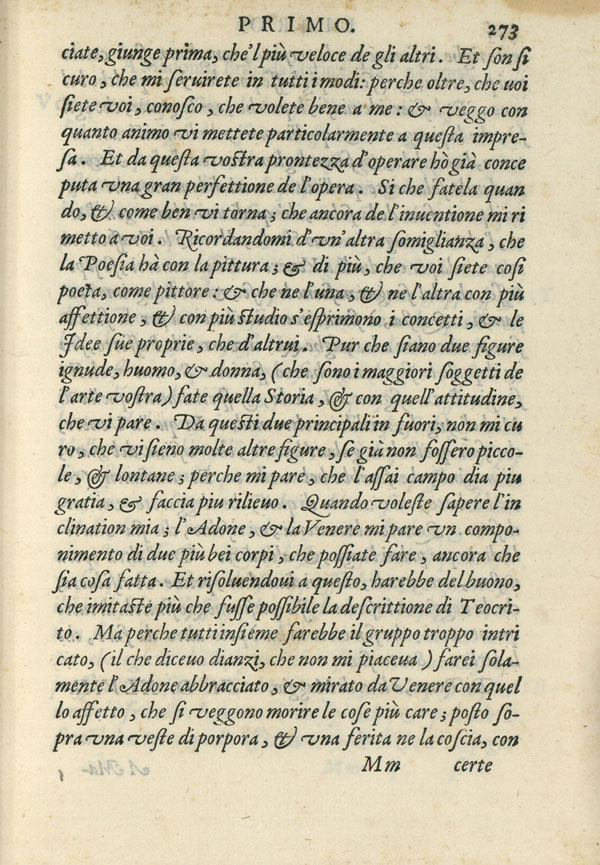 PRIMO. 273
ciate, giunge prima, che'l più veloce de gli altri. Et son si
curo, che mi seruirete in tutti i modi: perche oltre, che uoi
siete voi, conosco, che volete bene a me: & veggo con
quanto animo vi mettete particolarmente a questa impre-
sa. Et da questa vostra prontezza d'operare hò già conce
puta vna gran perfettione de l'opera. Si che fatela quan
do, & come ben vi torna; che ancora de l'inuentione mi ri
metto a voi. Ricordandomi d'vn'altra somiglianza, che
la Poesia hà con la pittura; & di più, che voi siete cosi
poeta, come pittore: & che ne l'una, & ne l'altra con più
affettione, & con più studio s'esprimono i concetti, & le
Idee sue proprie, che d'altrui. Pur che siano due figure
ignude, huomo, & donna, (che sono i maggiori soggetti de
l'arte vostra) fate quella Storia, & con quell'attitudine,
che vi pare. Da questi due principali in fuori, non mi cu
ro, che vi sieno molte altre figure, se già non fossero picco-
le, & lontane; perche mi pare, che l'assai campo dia piu
gratia, & faccia piu rilieuo. Quando voleste sapere l'in
clination mia; l'Adone, & la Venere mi pare vn compo-
nimento di due più bei corpi, che possiate fare, ancora che
sia cosa fatta. Et risoluendoui a questo, harebbe del buono,
che imitaste più che fusse possibile la descrittione di Teocri
to. Ma perche tutti insieme farebbe il gruppo troppo intri
cato, (il che diceuo dianzi, che non mi piaceua) farei sola-
mente l'Adone abbracciato, & mirato da Venere con quel
lo affetto, che si veggono morire le cose più care; posto so-
pra vna veste di porpora, & vna ferita ne la coscia, con
Mm certe